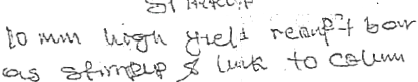 10 mm high yield reinf't bar
as stirrup & link to column